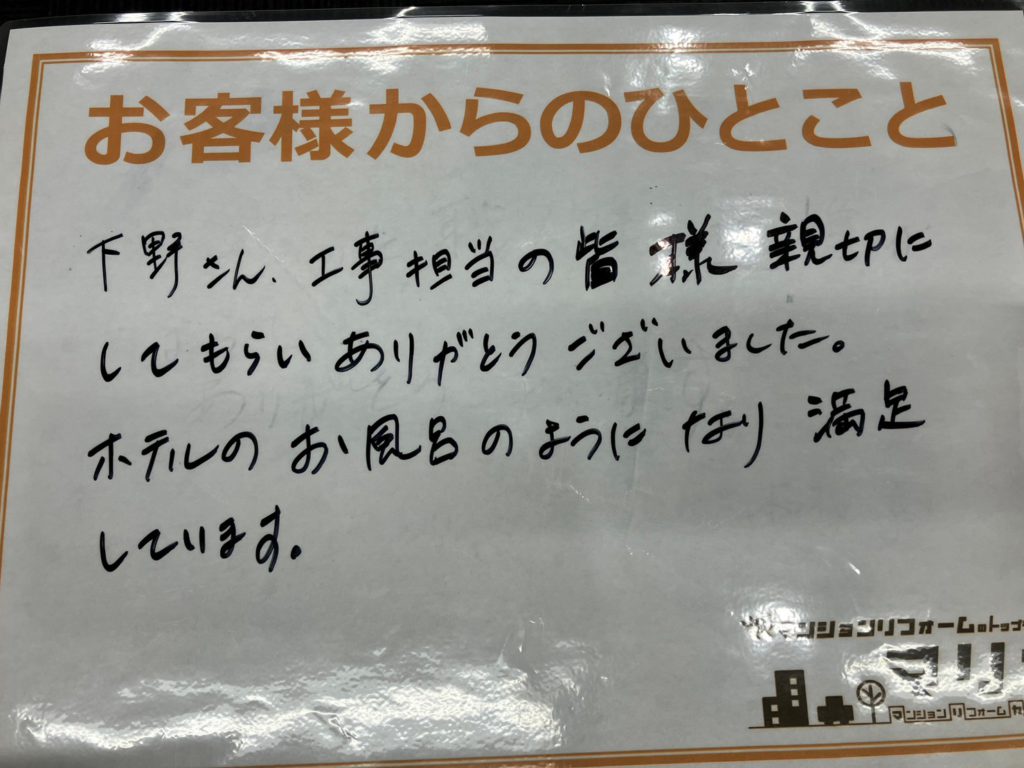 お客様からのひとこと
下野さん、工事担当の皆様親切に
してもらいありがとうございました。
ホテルのお風呂のようになり満足
しています。
マンションリフォームのトップ
マリ
マンションリフォーム